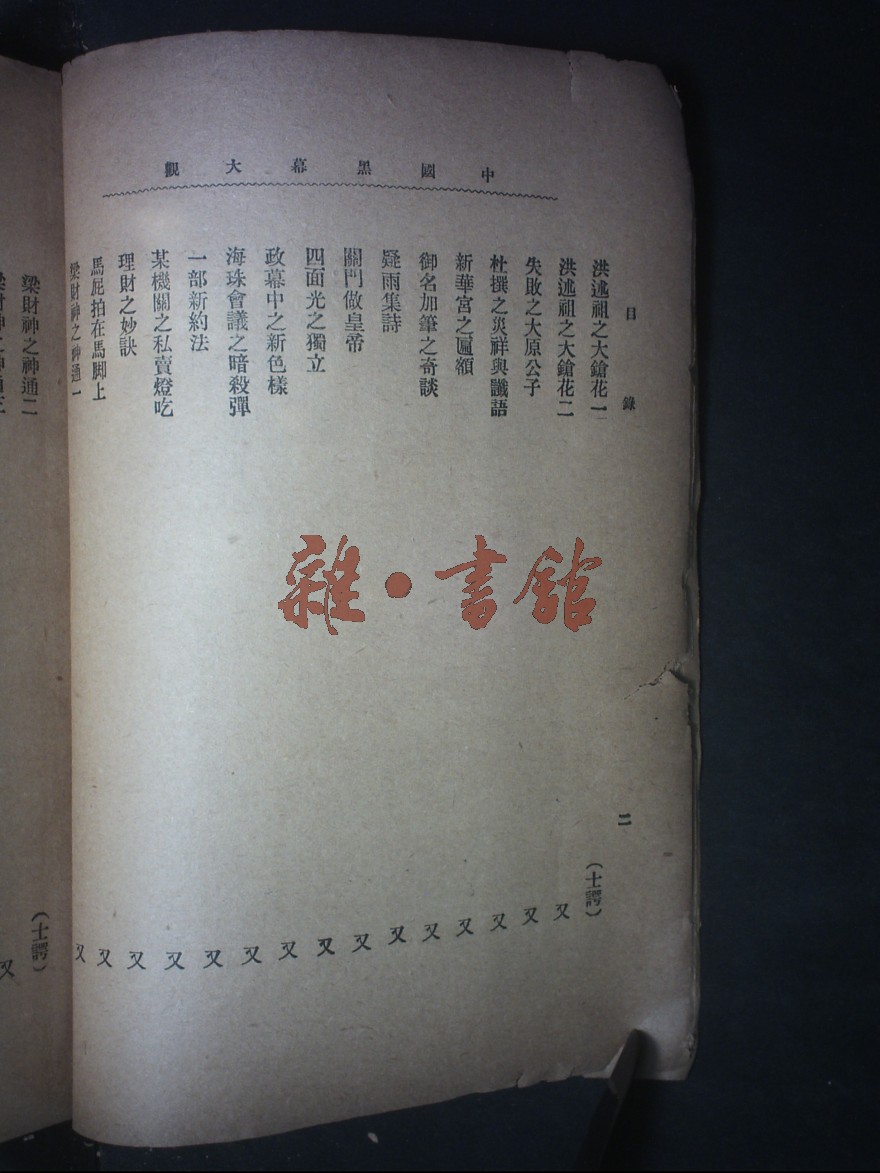 中國黑幕大觀
目錄 二
洪述祖之大鎗花一 (士諤)
洪述祖之大鎗花二 又
失敗之大原公子 又
杜撰之災祥與讖語 又
新華宮之匾額 又
御名加筆之奇談 又
疑雨集詩 又
關門做皇帝 又
四面光之獨立 又
政幕中之新色樣 又
海珠會議之暗殺彈 又
一部新約法 又
某機關之私賣燈吃 又
理財之妙訣 又
馬屁拍在馬脚上 又
梁財神之神通一 又
梁財神之神通二 (士諤)
梁財神之神通三 又
雜·書館